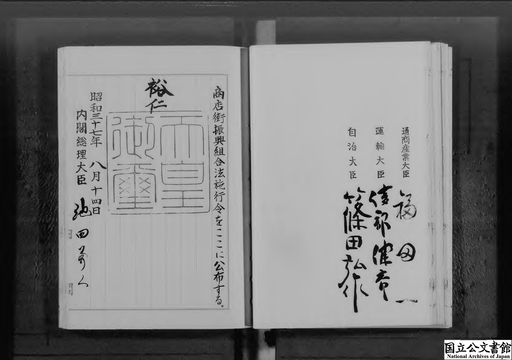 通商産業大臣 福田一
運輸大臣 綾部健太郎
自治大臣 篠田弘作
商店街振興組合法施行令をここに公布する。
裕仁
天皇
御璽
昭和三十七年 八月十四日
内閣総理大臣 池田勇人
国立公文書館
National Archives of Japan